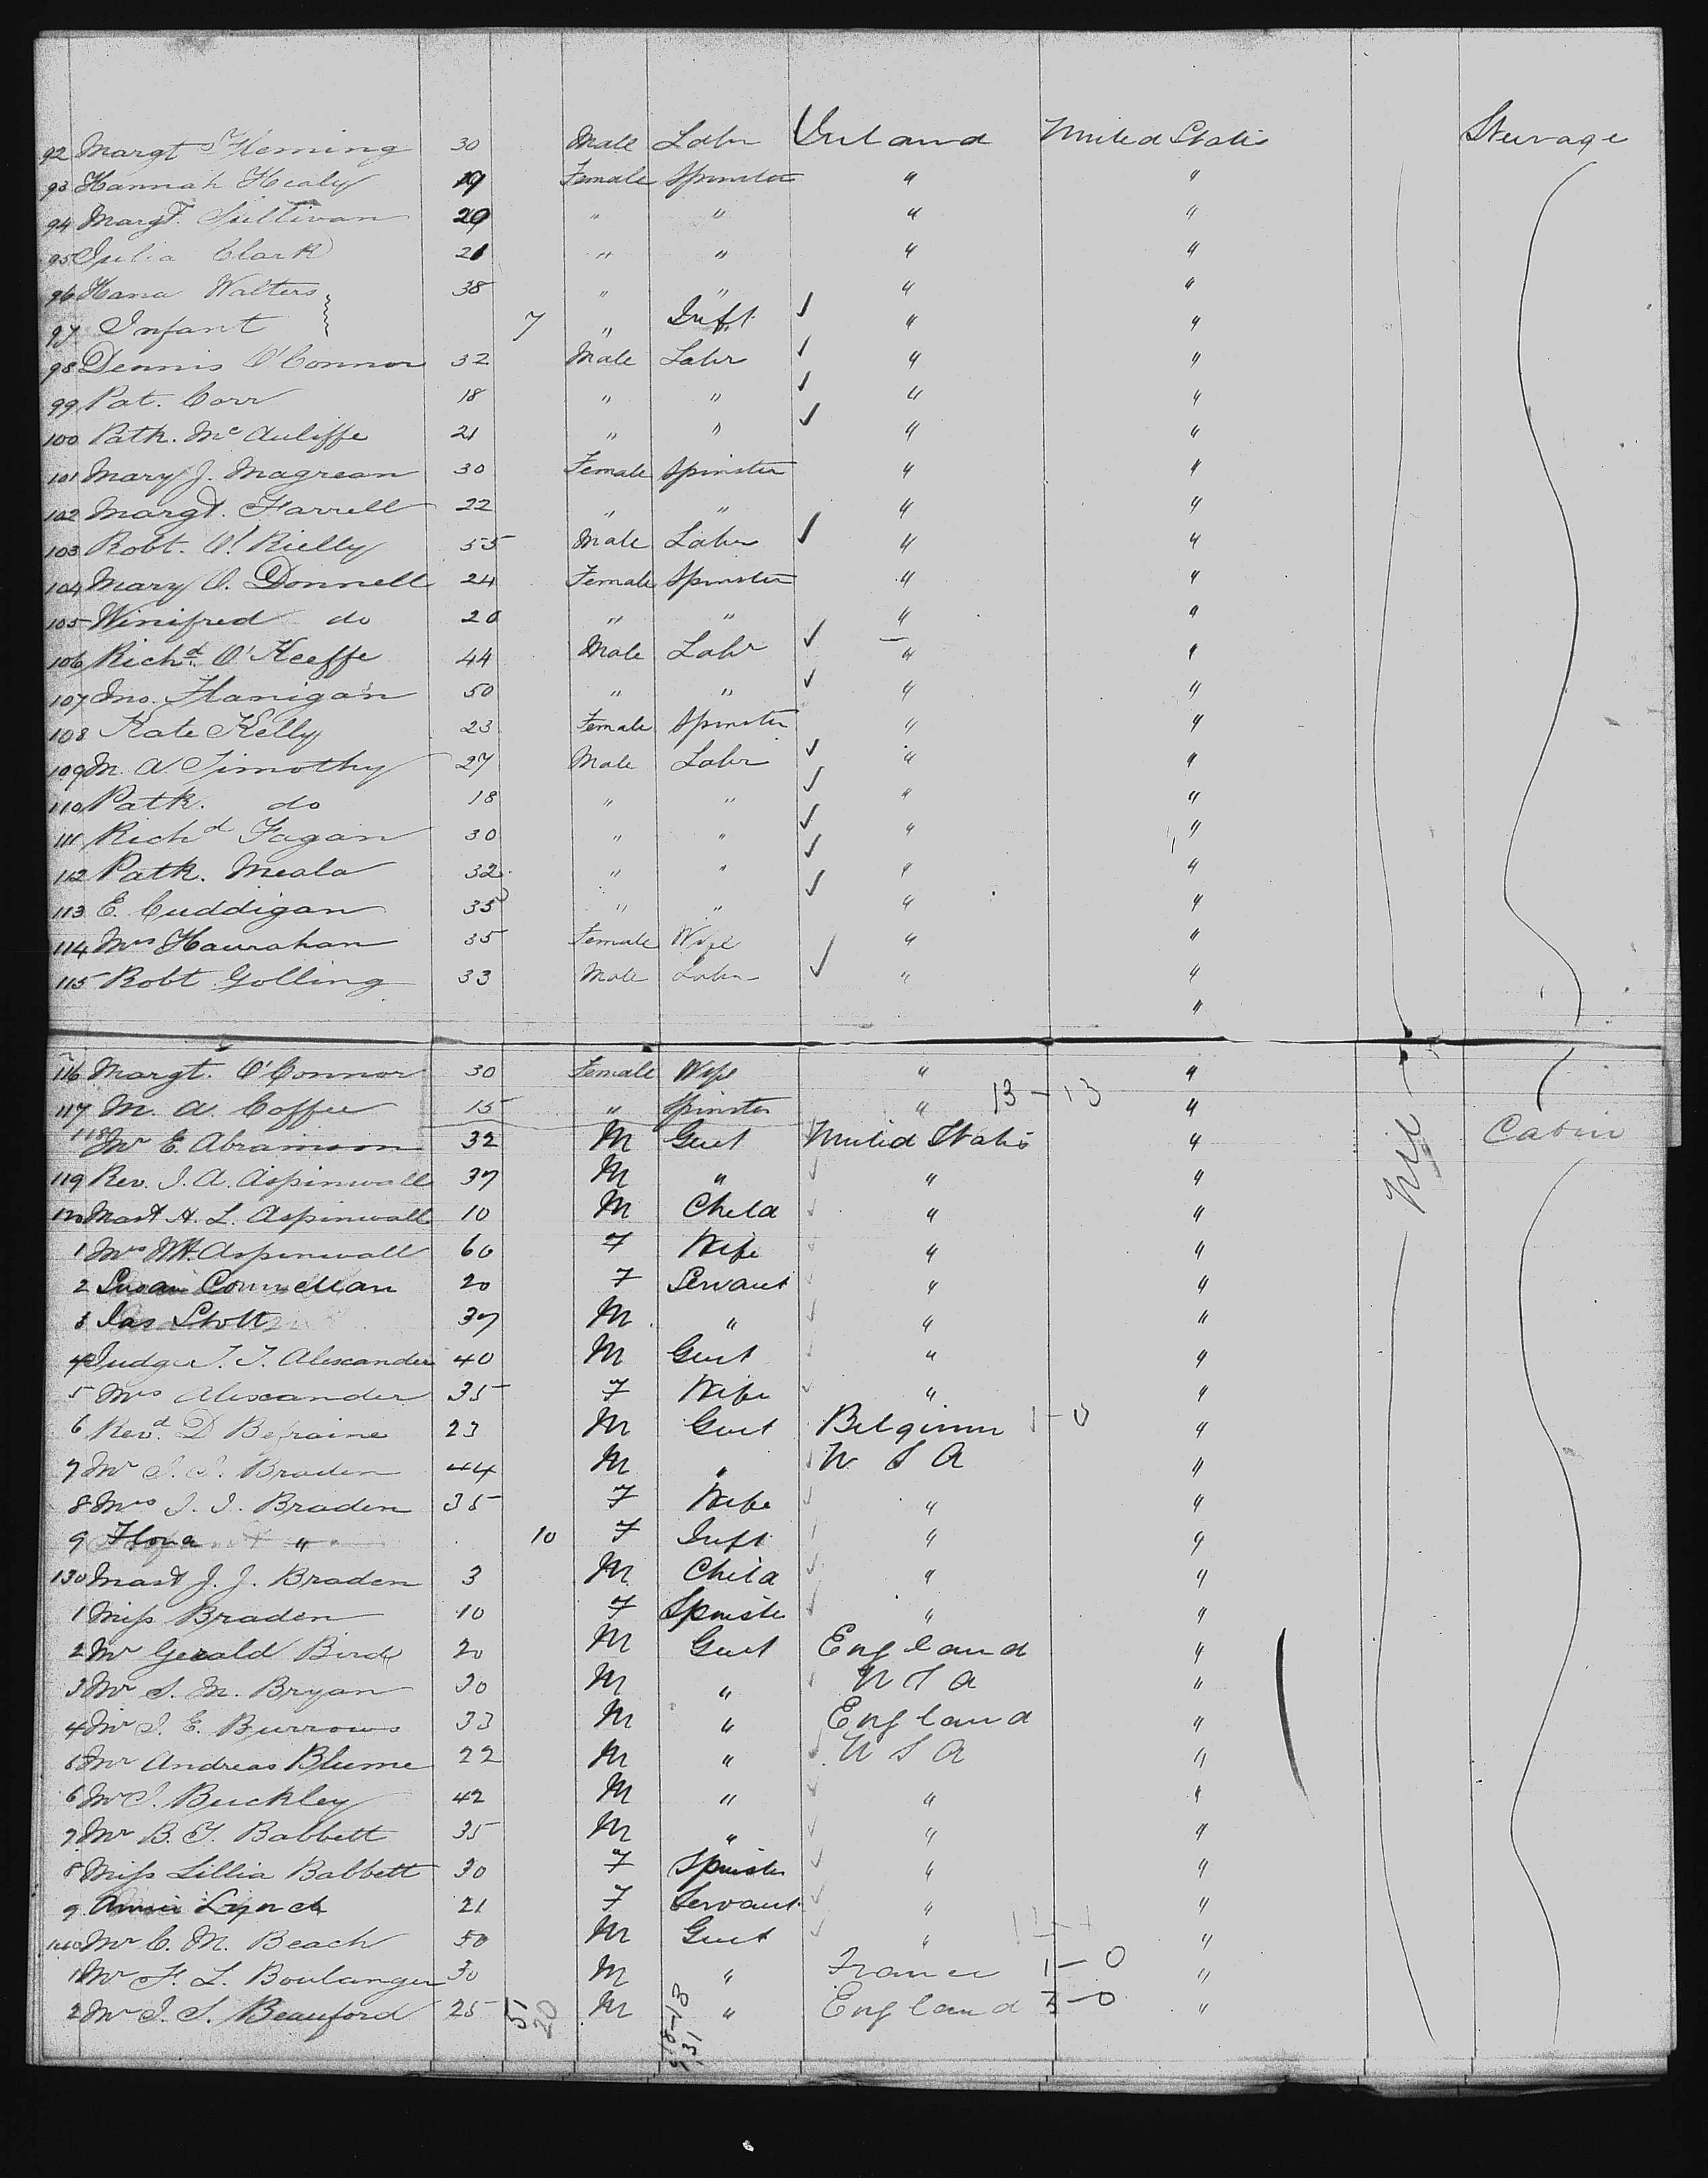 92 Margt Fleming 30 Male Labr Ireland United States Steerage
93 Hannah Healy 19 Female Spinster " "
94 Margt. Sullivan 29 " " " "
95 Julia Clark 21 " " " "
96 Hana Walters 38 " " " "
97 Infant 7 " Inft. ✓ " "
98 Dennis O'Connor 32 Male Labr ✓ " "
99 Pat. Carr 18 " " ✓ " "
100 Patk. McAuliffe 21 " " ✓ " "
101 Mary J. Magrean 30 Female Spinster " "
102 Margt. Farrell 22 " " " "
103 Robt. O'Rielly 55 Male Labr ✓ " "
104 Mary O. Donnell 24 Female Spinster " "
105 Winifred do 20 " " " "
106 Richd. O'Keeffe 44 Male Labr ✓ " "
107 Jno. Flanigan 50 " " ✓ " "
108 Kate Kelly 23 Female Spinster " "
109 M. A. Timothy 27 Male Labr ✓ " "
110 Patk. do 18 " " ✓ " "
111 Richd Fagan 30 " " ✓ " "
112 Patk. Meala 32 " " ✓ " "
113 E. Cuddigan 35 " " ✓ " "
114 Mrs Hanrahan 35 Female Wife " "
115 Robt Golling 33 Male Labr ✓ " "
"
116 Margt. O'Connor 30 Female Wife " "
117 M. A. Coffee 15 " Spinster " 13-13 "
118 Mr E. Abramson 32 M Gent United States " Nil Cabin
119 Rev. J. A. Aspinwall 37 M " ✓ " "
120 Mast A. L. Aspinwall 10 M Child ✓ " "
1 Mrs W.H. Aspinwall 60 F Wife ✓ " "
2 Susan Connellan 20 F Servant ✓ " "
3 Jas Stott 37 M " ✓ " "
4 Judge J. J. Alexander 40 M Gent ✓ " "
5 Mrs Alexander 35 F Wife ✓ " "
6 Revd. D Befraine 23 M Gent Belgium 1-0 "
7 Mr J. J. Braden 44 M " ✓ U S A "
8 Mrs J. J. Braden 35 F Wife ✓ " "
9 Flora " 10 F Inft. ✓ " "
130 Mast J. J. Braden 3 M Child ✓ " "
1 Miss Braden 10 F Spinster ✓ " "
2 Mr Gerald Bird 20 M Gent England "
3 Mr S. M. Bryan 30 M " ✓ U S A "
4 Mr J. E. Burrows 33 M " England "
5 Mr Andreas Blume 22 M " ✓ U S A "
6 Mr J. Buckley 42 M " ✓ " "
7 Mr B. T. Babbett 35 M " ✓ " "
8 Miss Lillia Babbett 30 F Spinster ✓ " "
9 Annie Lynch 21 F Servant ✓ " "
140 Mr C. M. Beach 50 M Gent ✓ " "
1 Mr F. L. Boulanger 30 M " France 1-0 "
2 Mr J. S. Beauford 25 M " England 3-0 "
51
20